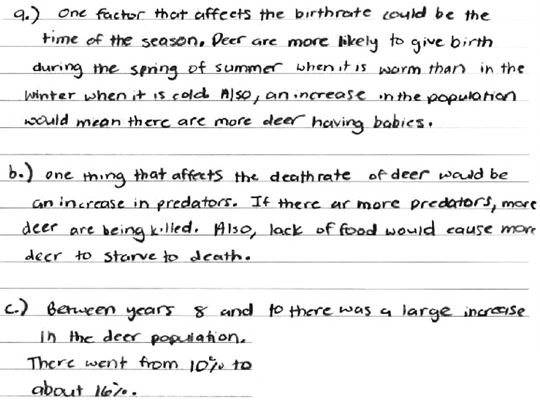 a.) One factor that affects the birthrate could be the
time of the season. Deer are more likely to give birth
during the spring of summer when it is warm than in the
winter when it is cold. Also, an increase in the population
would mean there are more deer having babies.
b.) one thing that affects the deathrate of deer would be
an increase in predators. If there ar more predators, more
deer are being killed. Also, lack of food would cause more
deer to starve to death.
c.) Between years 8 and 10 there was a large increase
in the deer population.
There went from 10% to
about 16%.